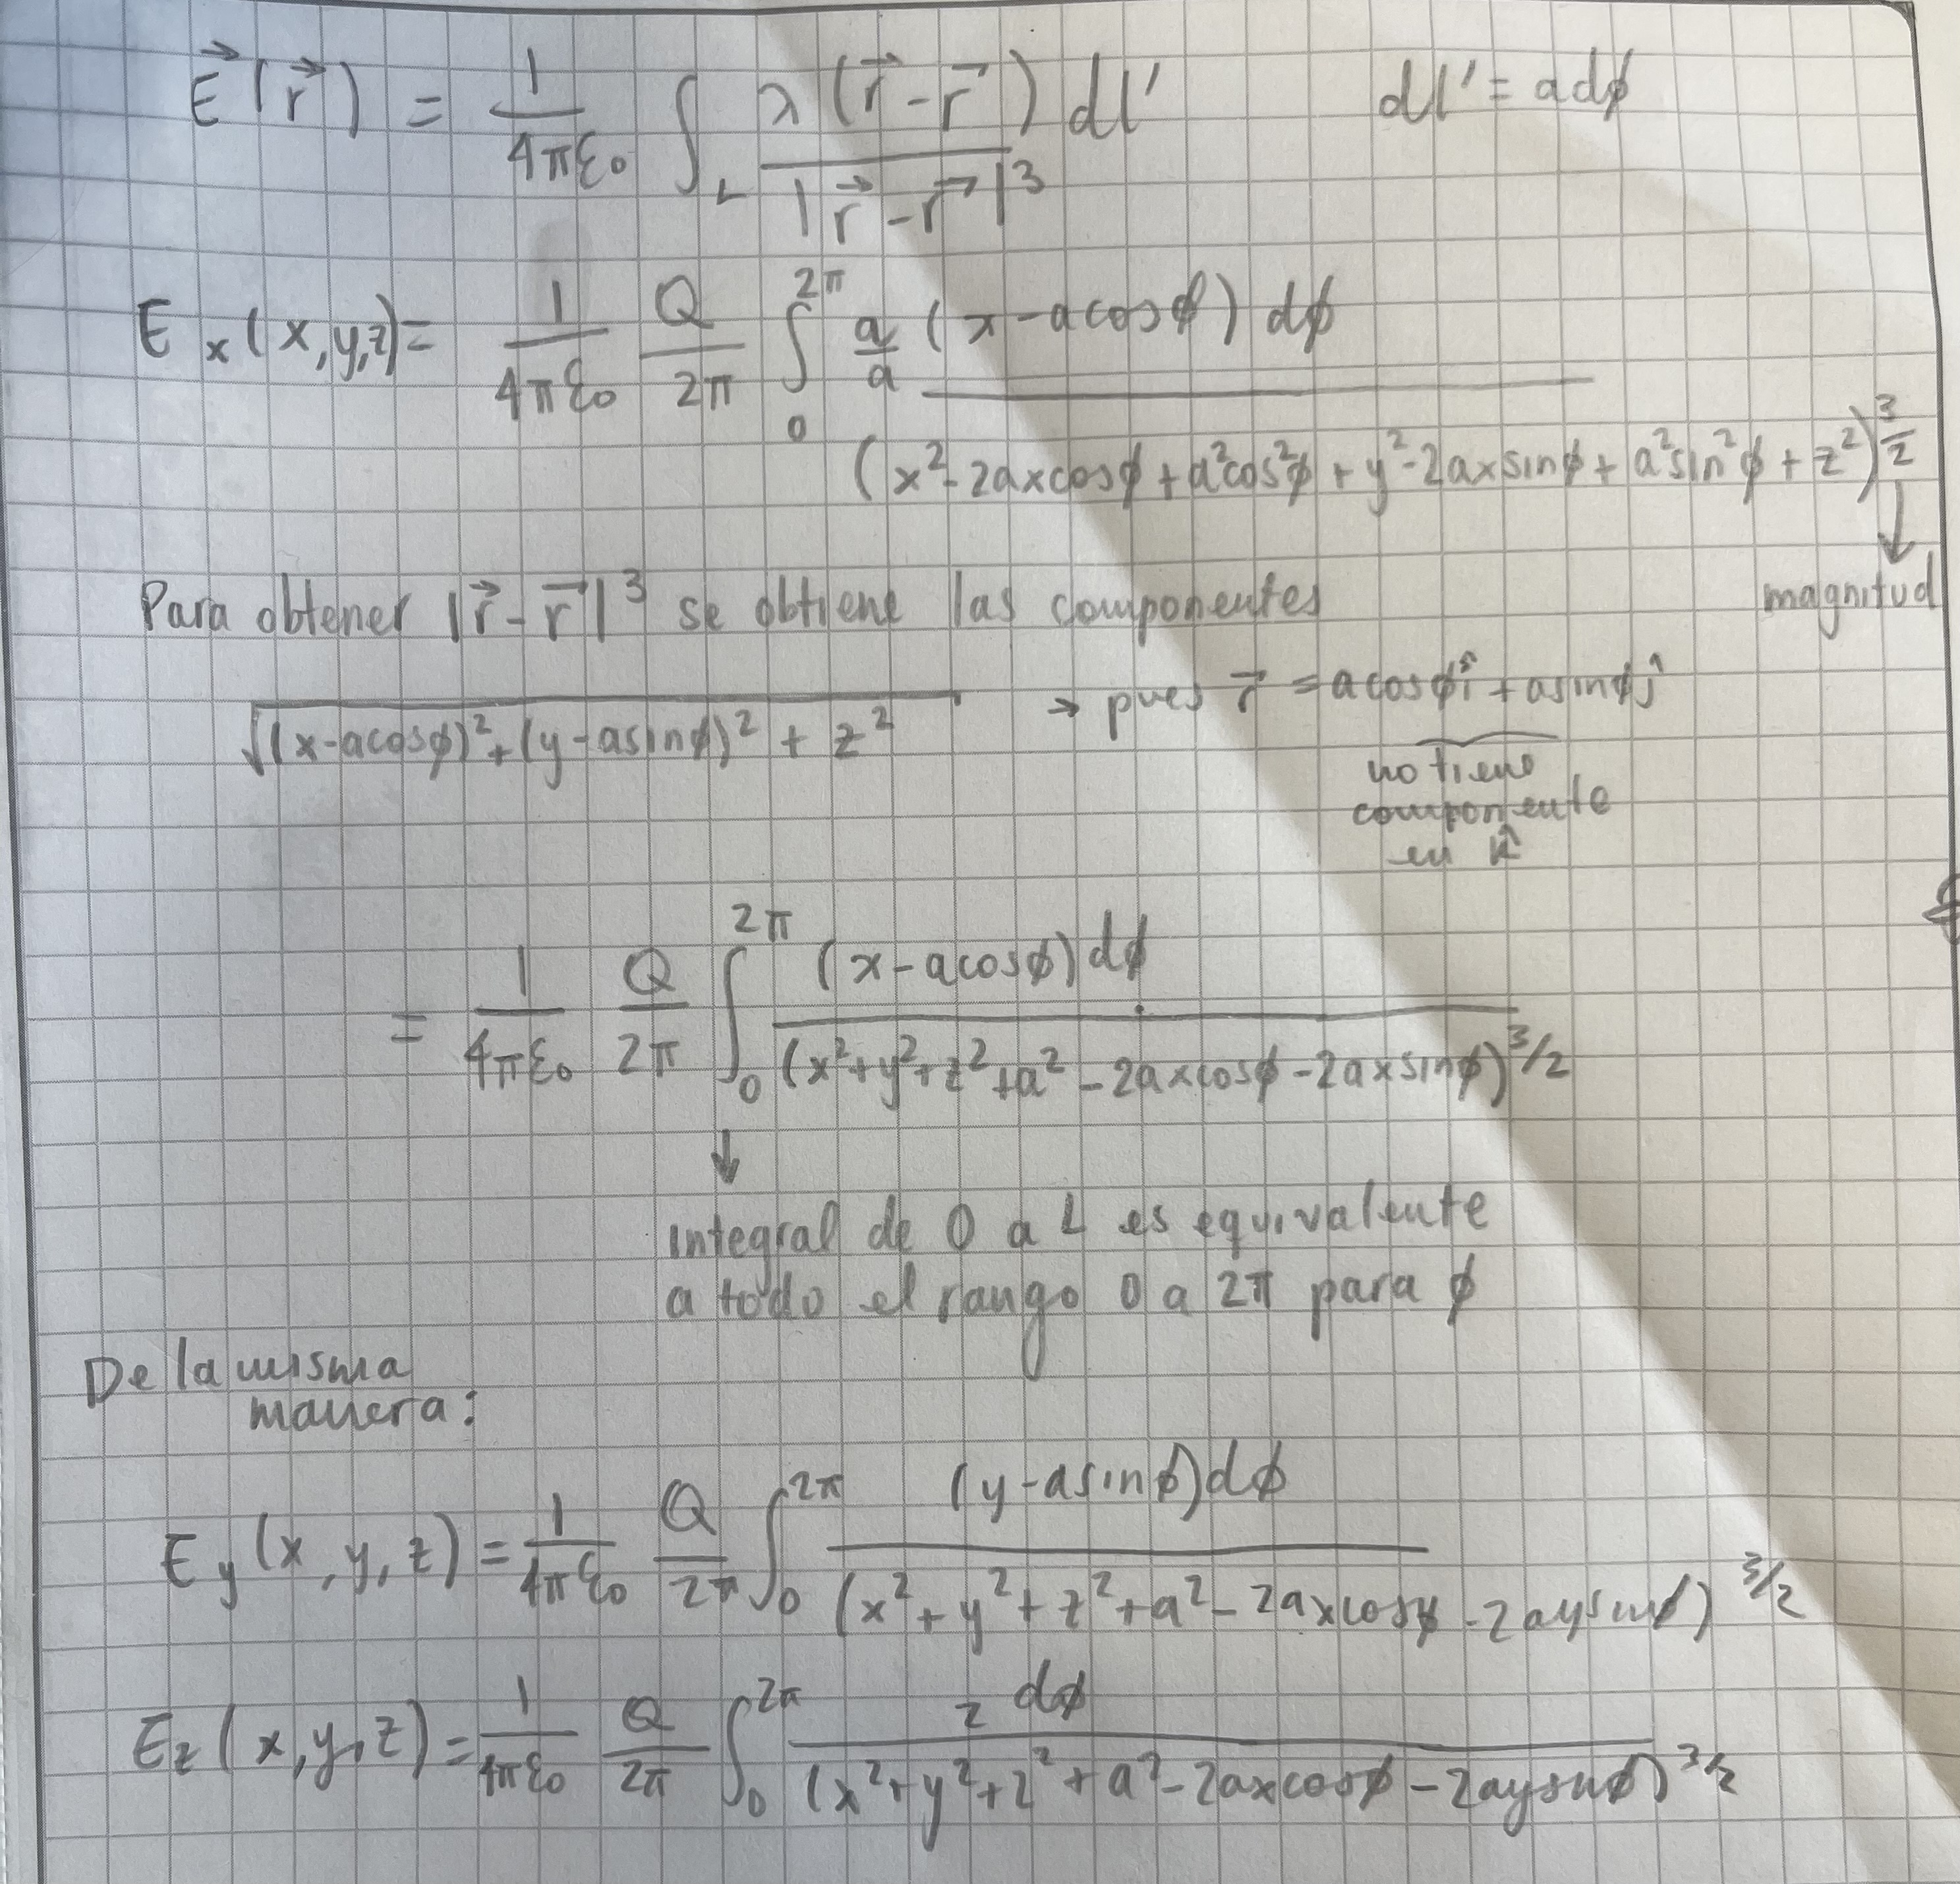 E⃗(r⃗) = 1/4πε₀ ∫_L λ(r⃗ - r⃗) dl' / |r⃗ - r⃗|³    dl' = adϕ
E_x(x,y,z) = 1/4πε₀ Q/2π ∫_0^2π a/a (x - acosϕ) dϕ / (x² - 2axcosϕ + a²cos²ϕ + y² - 2axsinϕ + a²sin²ϕ + z²)^3/2
↓
magnitud
Para obtener |r⃗ - r⃗|³ se obtiene las componentes
√((x-acosϕ)² + (y-asinϕ)² + z²) → pues r⃗ = acosϕî + asinϕĵ
no tiene
componente
en k̂
= 1/4πε₀ Q/2π ∫_0^2π (x - acosϕ)dϕ / (x² + y² + z² + a² - 2axcosϕ - 2axsinϕ)^3/2
↓
integral de 0 a L es equivalente
a todo el rango 0 a 2π para ϕ
De la misma
manera:
E_y(x,y,z) = 1/4πε₀ Q/2π ∫_0^2π (y-asinϕ)dϕ / (x² + y² + z² + a² - 2axcosϕ - 2aysinϕ)^3/2
E_z(x,y,z) = 1/4πε₀ Q/2π ∫_0^2π z dϕ / (x² + y² + z² + a² - 2axcosϕ - 2aysinϕ)^3/2